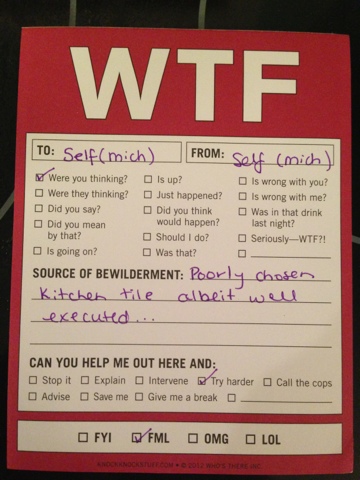 WTF
TO: Self (mich) FROM: Self (mich)
Were you thinking? Is up? Is wrong with you?
Were they thinking? Just happened? Is wrong with me?
Did you say? Did you think would happen? Was in that drink last night?
Did you mean by that? Should I do? Seriously—WTF?!
Is going on? Was that?
SOURCE OF BEWILDERMENT: Poorly chosen
kitchen tile albeit well
executed...
CAN YOU HELP ME OUT HERE AND:
Stop it Explain Intervene Try harder Call the cops
Advise Save me Give me a break
FYI FML OMG LOL
KNOCKKNOCKSTUFF.COM • © 2012 WHO'S THERE INC.